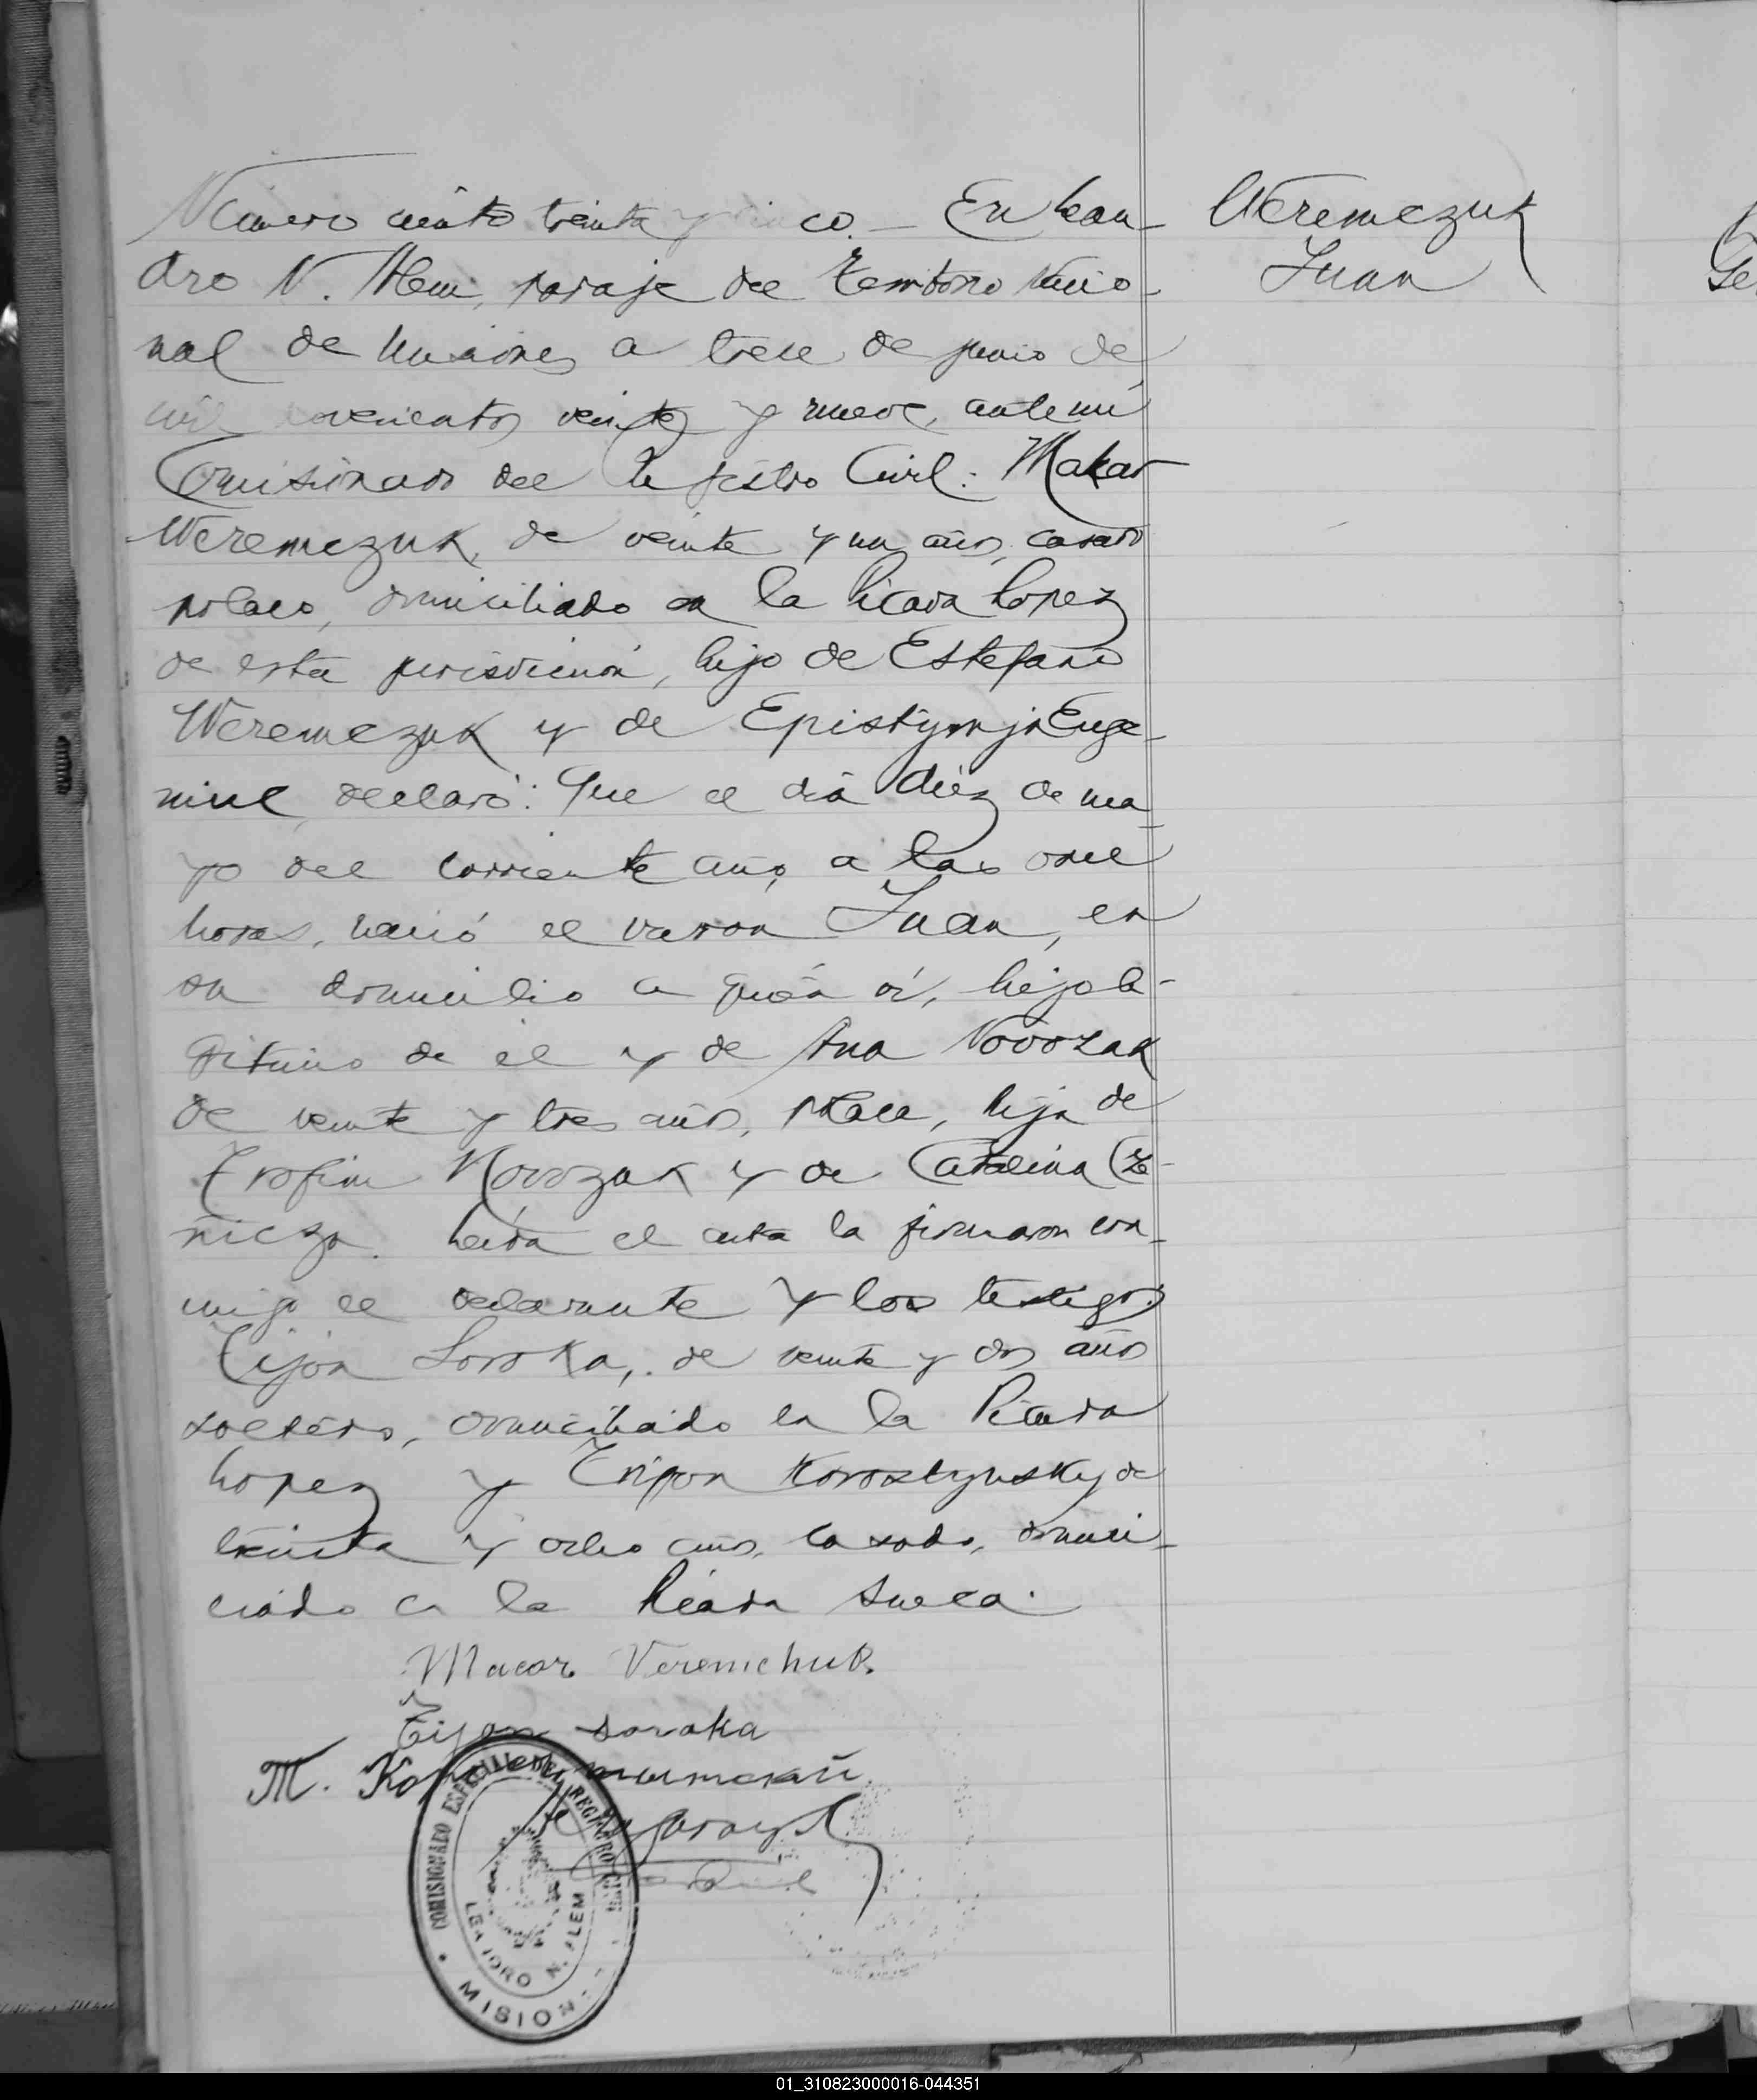 Número ciento treinta y cinco.— En Lean-
dro N. Alem, paraje del Territorio Nacio-
nal de Misiones a trece de junio de
mil novecientos veinte y nueve, ante mi
Comisionado del Registro Civil: Makar
Weremczuk, de veinte y un años, casado
polaco, domiciliado en la Picada Lopez
de esta jurisdiccion, hijo de Estefano
Weremczuk y de Epistymja Euge-
niuk, declaró: Que el día diez de ma-
yo del corriente año, a las once
horas, nació el varon Juan, en
su domicilio a quien vi, hijo le-
gitimo de el y de Ana Novozak
de veinte y tres años, polaca, hija de
Trofim Novozak y de Catalina
Leida el acta la firmaron con-
migo el declarante y los testigos
Tijon Soroka, de veinte y dos años
soltero, domiciliado en la Picada
Lopez y Trifon Korostynsky de
treinta y ocho años, casado, domici-
ciado en la Picada Sueca.
Macar Veremchuk
Tijon Soroka
M. Ко
COMISIONADO ESPECIAL DEL REGISTRO CIVIL
LEANDRO N. ALEM
MISIONES
Weremczuk
Juan
01_310823000016-044351